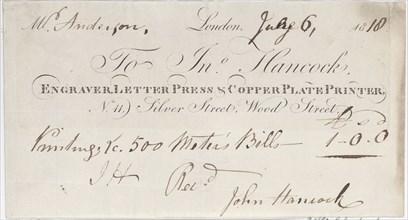 Mr Anderson, London, July 6, 1818
To Jno. Hancock,
ENGRAVER, LETTER PRESS & COPPER PLATE PRINTER,
No. 11, Silver Street, Wood Street.
£ s d
Printing &c. 500 Bills 1-0.0
JH Recd
John Hancock